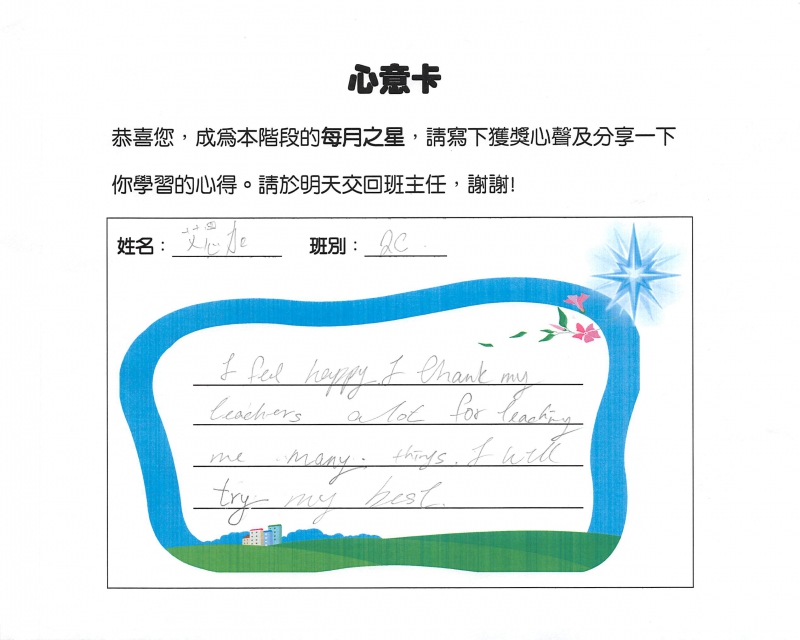 心意卡
恭喜您，成為本階段的每月之星，請寫下獲獎心聲及分享一下
你學習的心得。請於明天交回班主任，謝謝!
姓名： 班別： 2C
I feel happy. I thank my
teachers a lot for teaching
me many things. I will
try my best.